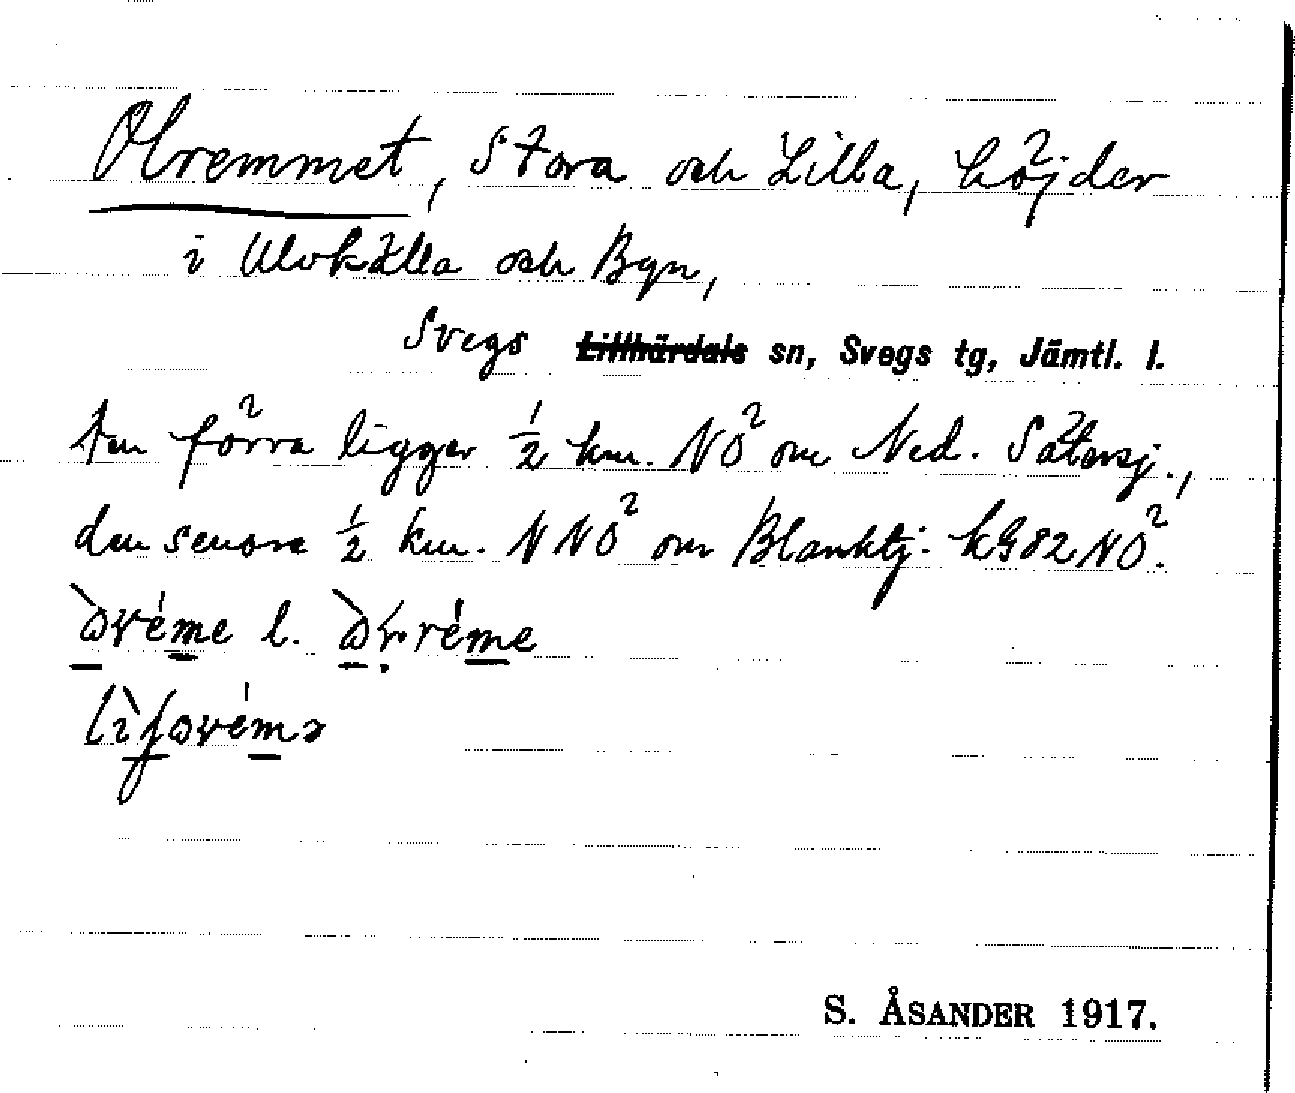 Olremmet, Stora och Lilla, höjder
i Ulvkälla och Byn,
Svegs ~~Lillhärdals~~ sn, Svegs tg, Jämtl. l.
Den förra ligger ½ km. NÖ om Ned. Sätersj.,
den senare ½ km. NNÖ om Blanktj. kG82NÖ.
l.
S. ÅSANDER 1917.